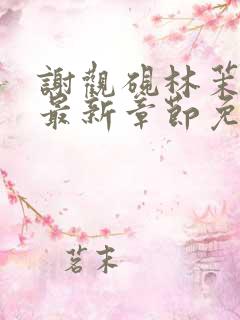 謝觀硯林茱
最新章節免
茗末